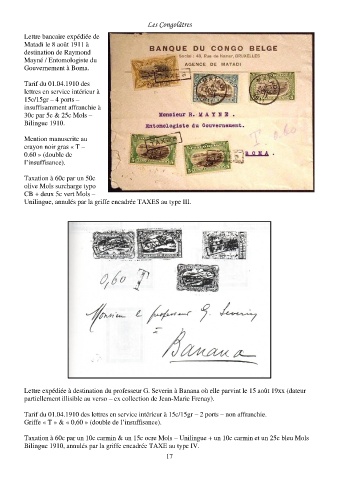 Les Congolâtres
Lettre bancaire expédiée de
Matadi le 8 août 1911 à
destination de Raymond
Mayné / Entomologiste du
Gouvernement à Boma.
Tarif du 01.04.1910 des
lettres en service intérieur à
15c/15gr – 4 ports –
insuffisamment affranchie à
30c par 5c & 25c Mols –
Bilingue 1910.
Mention manuscrite au
crayon noir gras « T –
0,60 » (double de
l’insuffisance).
Taxation à 60c par un 50c
olive Mols surcharge typo
CB + deux 5c vert Mols –
Unilingue, annulés par la griffe encadrée TAXES au type III.
BANQUE DU CONGO BELGE
48, Rue de Namur, BRUXELLES
AGENCE DE MATADI
Monsieur R. MAYNE.
Entomologiste du Gouvernement.
BOMA.
0,60 T
Monsieur le professeur G. Severin
à
Banana
Lettre expédiée à destination du professeur G. Severin à Banana où elle parvint le 15 août 19xx (dateur
partiellement illisible au verso – ex collection de Jean-Marie Frenay).
Tarif du 01.04.1910 des lettres en service intérieur à 15c/15gr – 2 ports – non affranchie.
Griffe « T » & « 0,60 » (double de l’insuffisance).
Taxation à 60c par un 10c carmin & un 15c ocre Mols – Unilingue + un 10c carmin et un 25c bleu Mols
Bilingue 1910, annulés par la griffe encadrée TAXE au type IV.
17